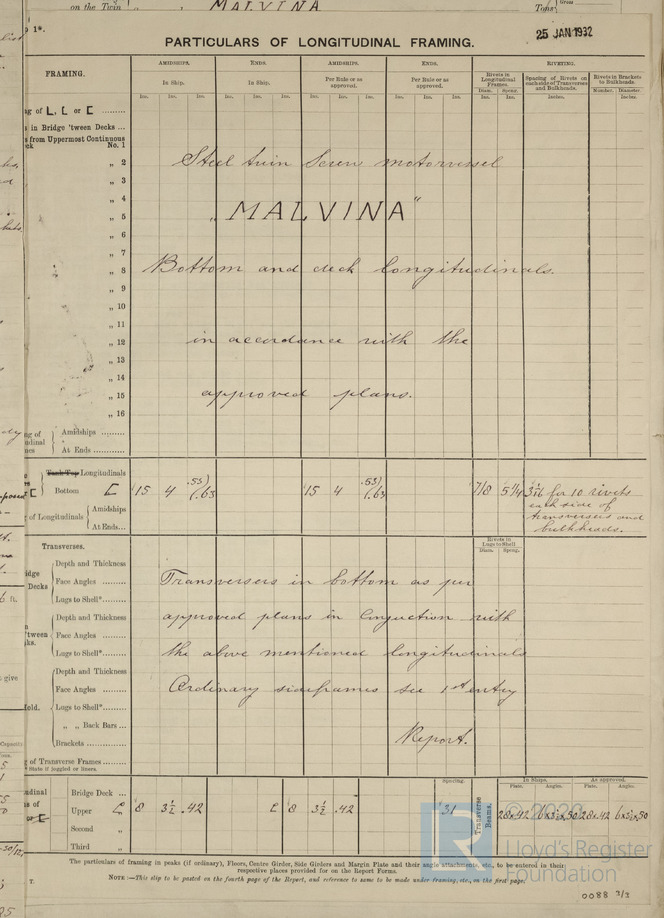 on the Twin MALVINA Tons Gross
1*.
25 JAN 1932
PARTICULARS OF LONGITUDINAL FRAMING.
FRAMING. AMIDSHIPS. ENDS. AMIDSHIPS. ENDS. RIVETING.
In Ship. In Ship. Per Rule or as approved. Per Rule or as approved. Rivets in Longitudinal Frames. Spacing of Rivets on each side of Transverses and Bulkheads. Rivets in Brackets to Bulkheads.
Ins. Ins. Ins. Ins. Ins. Ins. Ins. Ins. Ins. Ins. Ins. Ins. Diam. Spcng. Inches. Number. Diameter. Inches.
g of L, C or C
in Bridge 'tween Decks ...
from Uppermost Continuous
No. 1
„ 2 Steel twin Screw motorvessel
„ 3
„ 4
„ 5 „MALVINA“
„ 6
„ 7
„ 8 Bottom and deck longitudinals
„ 9
„ 10
„ 11
„ 12 in accordance with the
„ 13
„ 14
„ 15 approved plans.
„ 16
Amidships
At Ends
Tank Top Longitudinals
Bottom C 15 4 .53) (.63 15 4 .53) (.63 7/8 5 1/4
for 10 rivets
each side of
transverses and
bulkheads.
of Longitudinals Amidships
At Ends...
Transverses. Rivets in Lugs to Shell
Diam. Spcng.
Depth and Thickness
Face Angles Transversers in bottom as per
Lugs to Shell*
Depth and Thickness approved plans in Conjuction with
Face Angles
Lugs to Shell* the above mentioned longitudinals
Depth and Thickness
Face Angles Ordinary sideframes see 1st entry
Lugs to Shell*
„ „ Back Bars ...
Brackets Report.
of Transverse Frames
State if joggled or liners.
Spacing. In Ships. As approved.
Plate. Angles. Plate. Angles.
Bridge Deck ...
Upper „ 8 3½ .42 8 3½ .42 31 Transverse Beams. 28x.42 28x.42
Second „
Third „
The particulars of framing in peaks (if ordinary), Floors, Centre Girder, Side Girders and Margin Plate and their angle attachments, etc., to be entered in their
respective places provided for on the Report Forms.
NOTE :—This slip to be posted on the fourth page of the Report, and reference to same to be made under framing, etc., on the first page.
Lloyd's Register
Foundation
0088 3/3